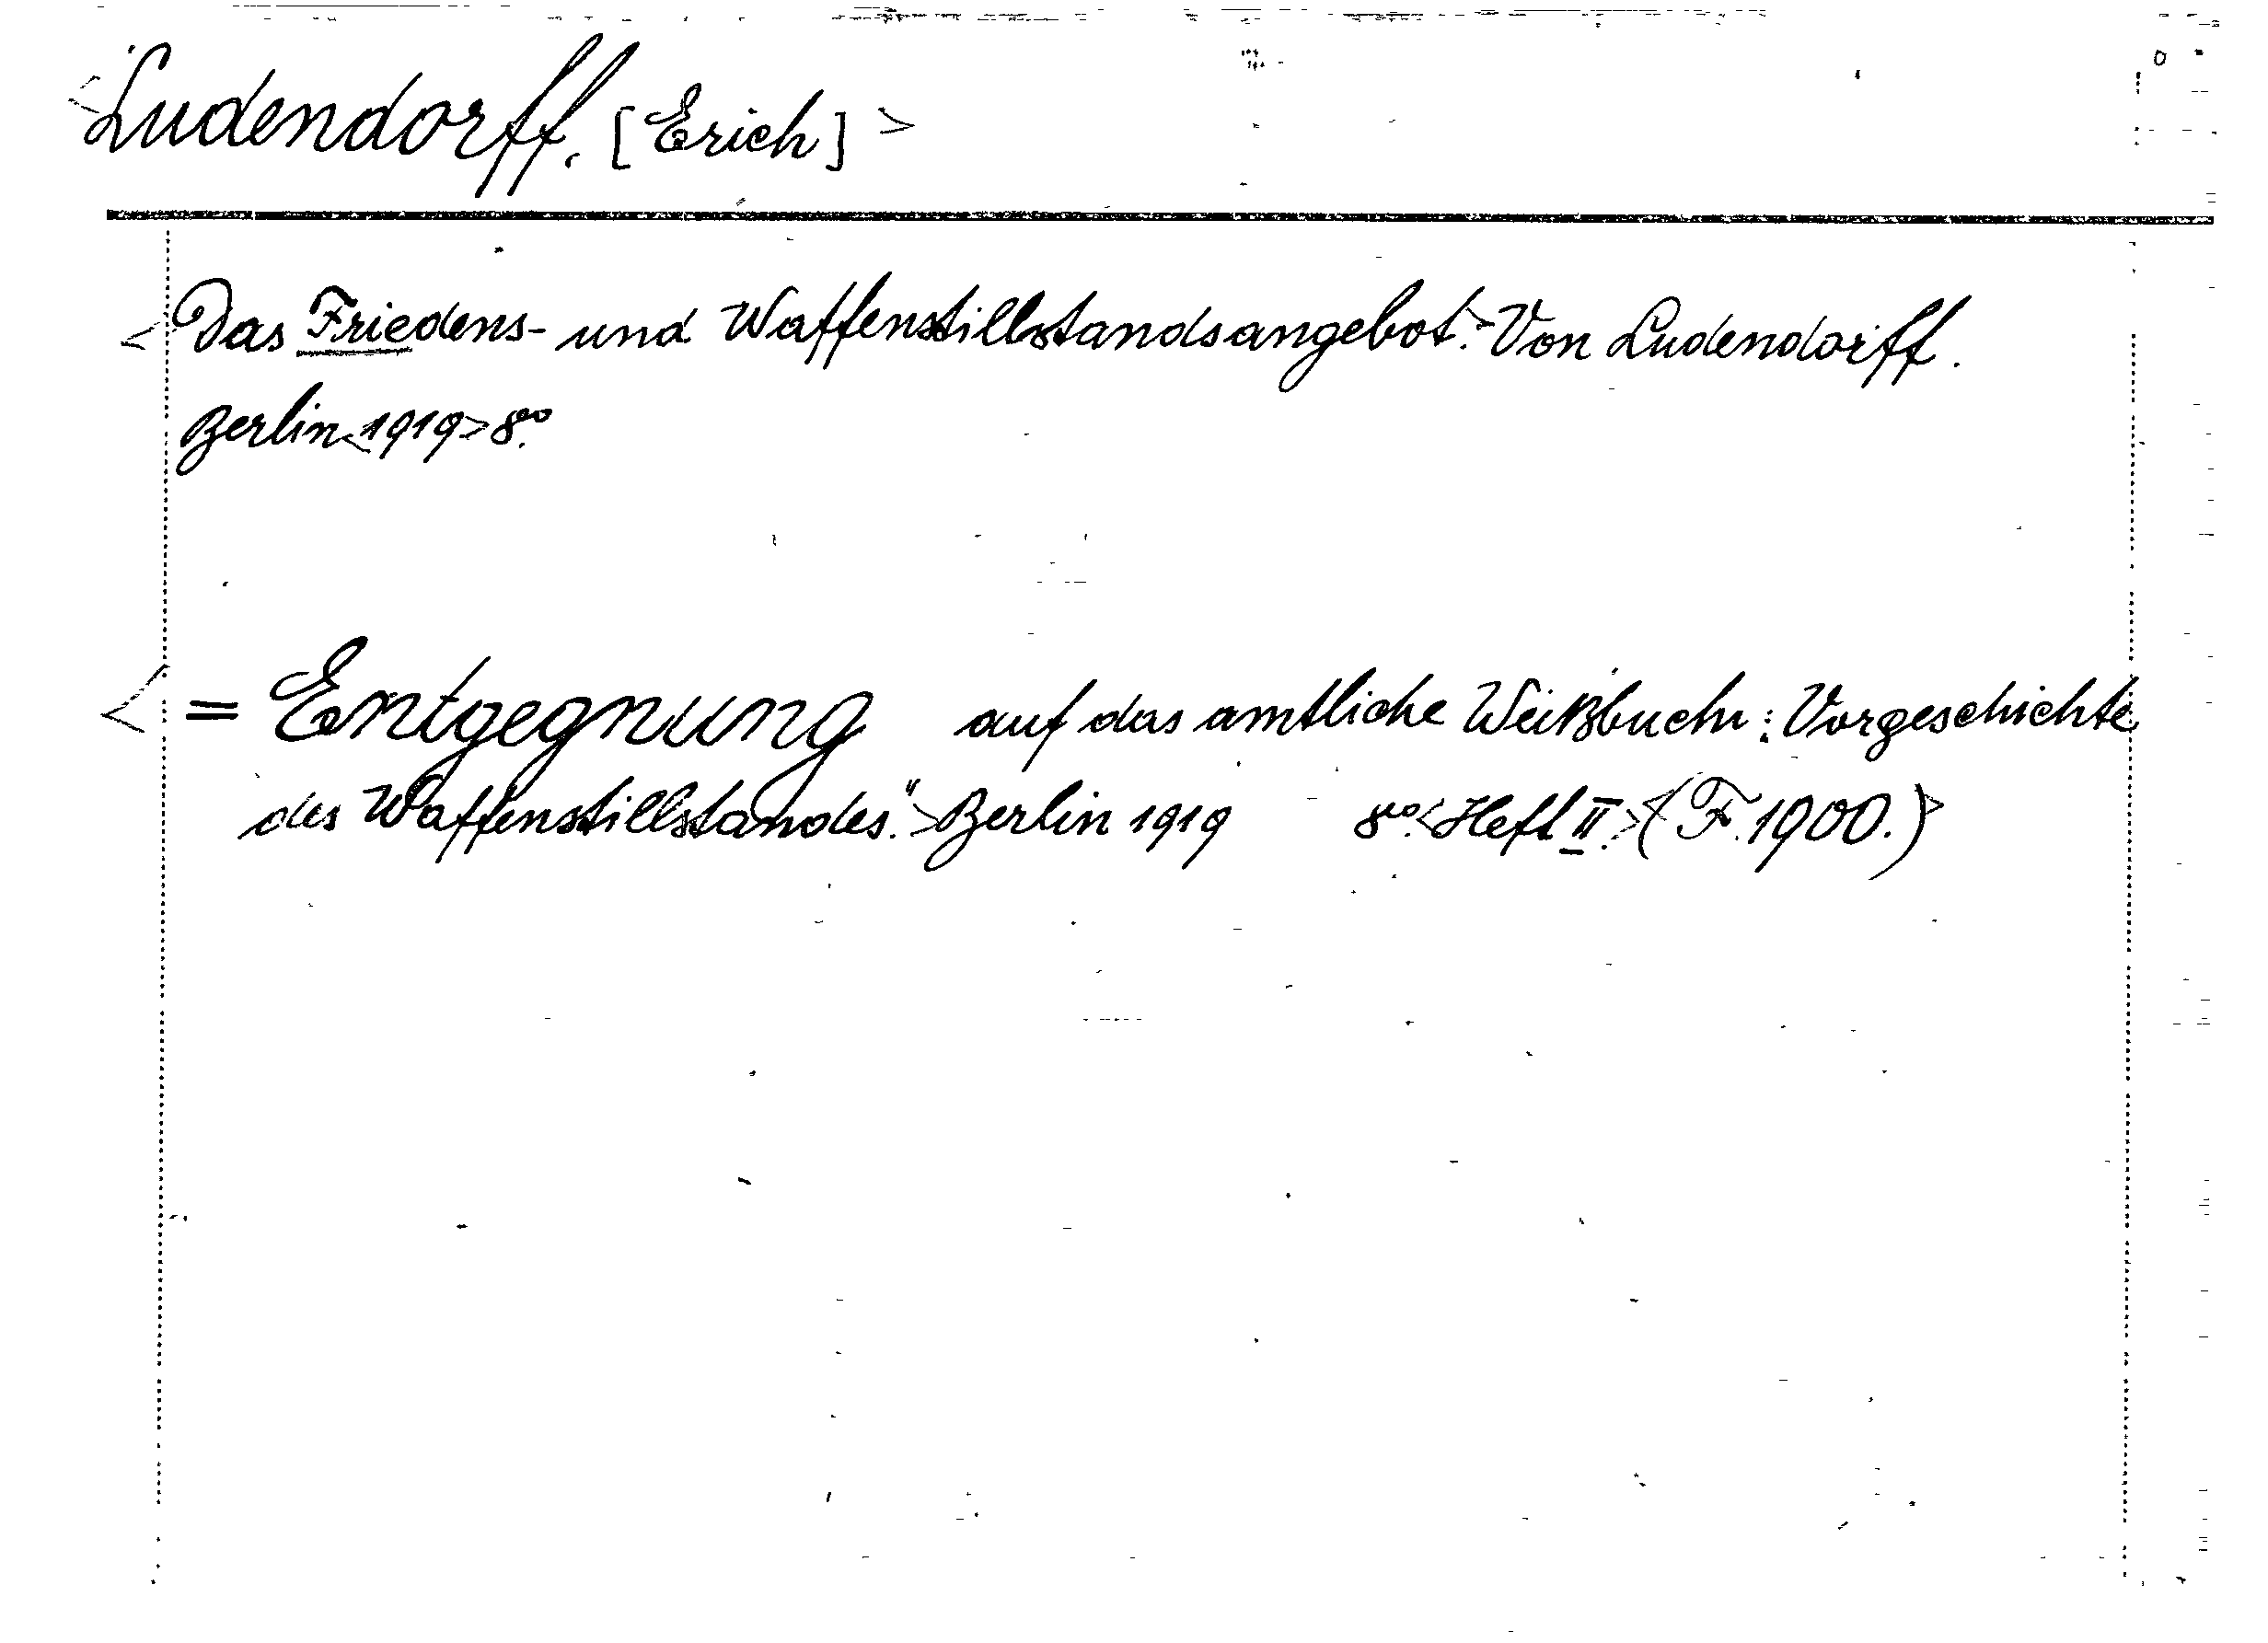 <Ludendorff, [Erich]>
<Das Friedens- und Waffenstillstandsangebot.> Von Ludendorff.
Berlin <1919> 8º.
<= Entgegnung auf das amtliche Weißbuch: „Vorgeschichte
des Waffenstillstandes.“> Berlin 1919 8º. <Heft II.> <(F. 1900.)>